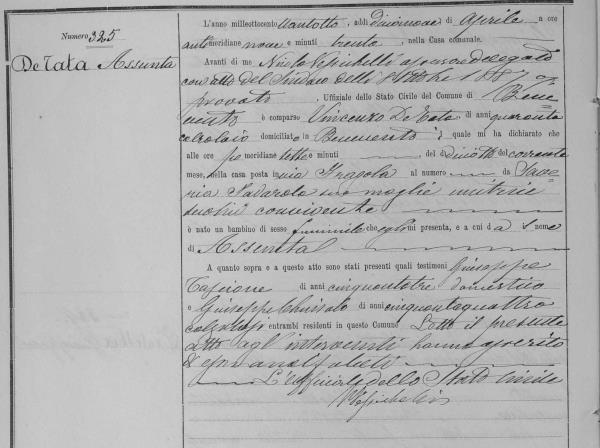 Numero 325
De Tata Assunta
L'anno milleottocento ttantotto, addì dicinnove di Aprile a ore
anti meridiane nove e minuti trenta, nella Casa comunale.
Avanti di me Nicola assessore delegato
con atto del Sindaco delli Ottobre 1887
provato, Uffiziale dello Stato Civile del Comune di Bene-
vento è comparso Vincenzo De Tata di anni quaranta
calzolaio domiciliato in Benevento il quale mi ha dichiarato che
alle ore po meridiane sette e minuti del dì diciotto del corrente
mese, nella casa posta in via Fragola al numero da Save-
ria sua moglie
convivente
è nato un bambino di sesso femminile che egli mi presenta, e a cui dà il nome
di Assunta
A quanto sopra e a questo atto sono stati presenti quali testimoni Giuseppe
di anni cinquantatre domestico
e Giuseppe di anni cinquantaquattro
entrambi residenti in questo Comune. Letto il presente
atto agl'intervenuti hanno asserito
essere analfabeti
L'Ufficiale dello Stato Civile